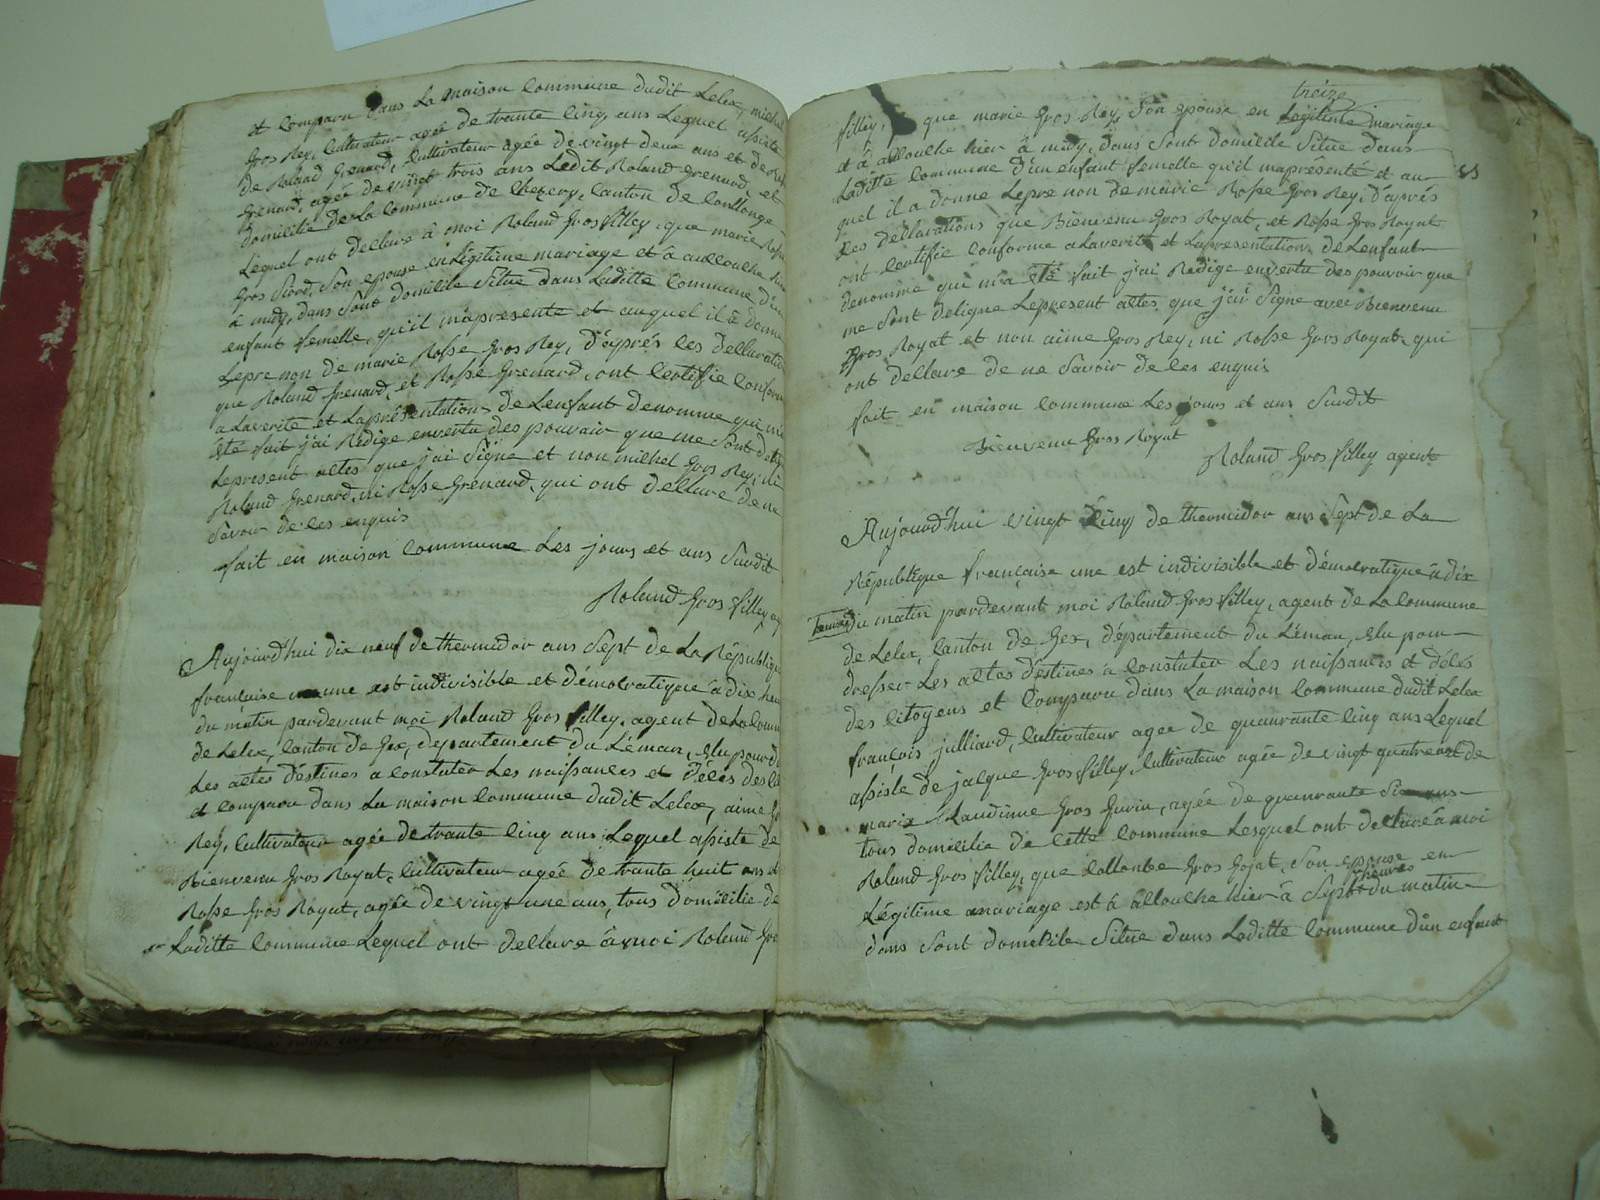 et Comparu dans La maison Commune dudit Lelex, michel
Gros Rey, Cultivateur agée de trante Cinq ans Lequel assiste
de Roland Grenard, Cultivateur agée de vingt deux ans et de Rosse
Grenard, agée de vingt trois ans Ledit Roland Grenard, et
domicilie de La Commune de Chezery, Canton de Collonge
Lequel ont declare à moi Roland Gros filley, que marie Rosse
Gros Son epouse en Légitime mariage et à accouche hier
à midy, dans Sont domicile Situe dans Laditte Commune d'un
enfant femelle, qu'il m'apresente et auquel il à donne
Lepre non de marie Rosse Gros Rey, d'aprés les declaration
que Roland Grenard, et Rosse Grenard, ont Certifie Conforme
a Laverite et Lapresentation de Lenfant denomme qui m'a
Eté fait j'ai Rédige envertu des pouvoir que me Sont
Lepresent actes que j'ai Signe et non michel Gros Rey, ni
Roland Grenard, ni Rosse Grenard, qui ont declare de ne
Savoir de Ces enquis
fait en maison Commune Les jours et ans Susdit
Roland Gros filley
Aujourd'hui dix neuf de thermidor ans Sept de La République
francaise une est indivisible et démocratique à dix heu
du matin pardevant moi Roland Gros filley, agent de La Commune
de Lelex, Canton de Gex, departement du Léman, Elu pour
Les actes déstines a Constater Les naissances et décés des
et Comparu dans La maison Commune dudit Lelex, aime Gros
Rey, Cultivateur agée de trante Cinq ans Lequel assiste de
Bienvenu Gros Royat, Cultivateur agée de trante huit ans et
Rosse Gros Royat, agée de vingt une ans, tous domicilie de
Laditte Commune Lequel ont declare à moi Roland Gros
treize
filley, que marie Gros Rey, Son epouse en Légitime mariage
et à accouche hier à midy, dans Sont domicile Situe dans
Laditte Commune d'un enfant femelle qu'il mapresenté et au
quel il a donne Lepre non de marie Rosse Gros Rey, d'aprés
Les declarations que Bienvenu Gros Royat, et Rosse Gros Royat
ont Certifie Conforme a Laverite et Lapresentation de Lenfant
denomme qui m'a Eté fait j'ai Redige envertu des pouvoir que
me Sont deligue Lepresent actes que j'ai Signe avec Bienvenu
Gros Royat et non aime Gros Rey, ni Rosse Gros Royat, qui
ont declare de ne Savoir de Ces enquis
fait en maison Commune Les jours et ans Susdit
Bienvenu Gros Royat
Roland Gros filley agent
Aujourd'hui vingt Cinq de thermidor ans Sept de La
République francaise une est indivisible et démocratique à dix
du matin pardevant moi Roland Gros filley, agent de La Commune
de Lelex, Canton de Gex, département du Léman, Elu pour
dresser Les actes déstines à Constater Les naissances et décés
des Citoyens et Comparu dans La maison Commune dudit Lelex
francois julliard, Cultivateur agée de quarante Cinq ans Lequel
assiste de jacque Gros filley, Cultivateur agée de vingt quatre ans et de
marie Claudinne Gros Gurin, agée de quarante Six ans
tous domicilie de Cette Commune Lesquel ont declare à moi
Roland Gros filley, que Collombe Gros Gojat, Son epouse en
Légitime mariage est à accouche hier à Sept heures du matin
dans Sont domicile Situe dans Laditte Commune d'un enfant